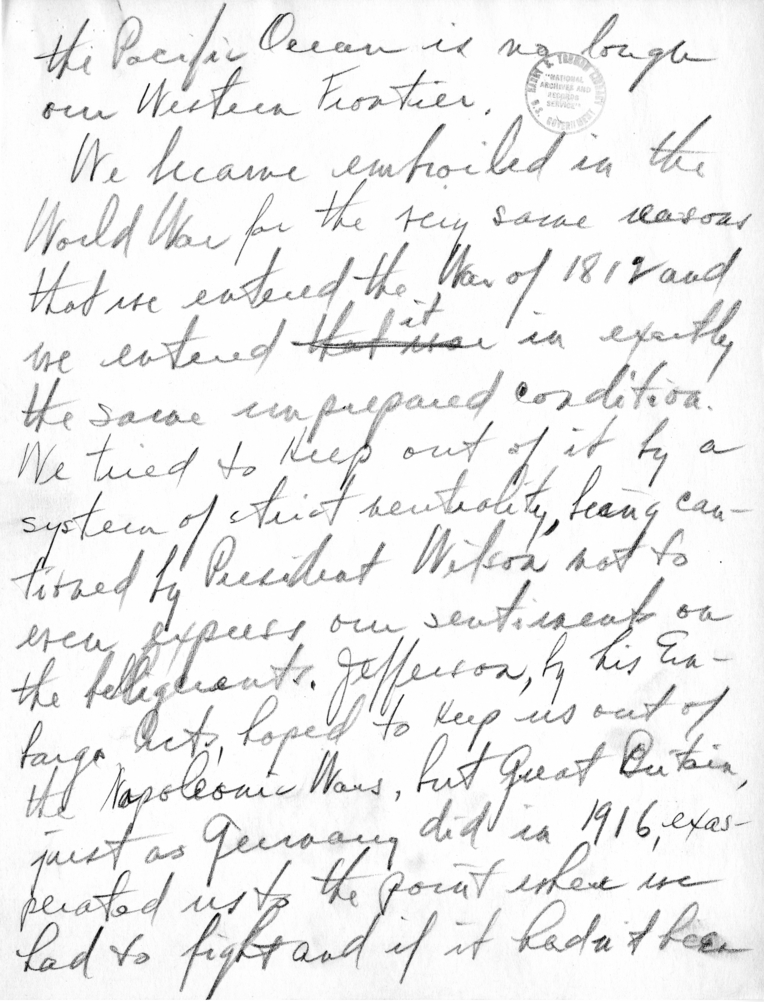 the Pacific Ocean is no longer
our Western Frontier.
HARRY S. TRUMAN LIBRARY
"NATIONAL
ARCHIVES AND
RECORDS
SERVICE"
U.S. GOVERNMENT
We became embroiled in the
World War for the very same reasons
that we entered the War of 1812 and
it
we entered that war in exactly
the same unprepared condition.
We tried to keep out of it by a
system of strict neutrality, being cau-
tioned by President Wilson not to
even express our sentiments on
the belligerents. Jefferson, by his Em-
bargo Acts, hoped to keep us out of
the Napoleonic Wars, but Great Britain,
just as Germany did in 1916, exas-
perated us to the point where we
had to fight and if it hadn't been